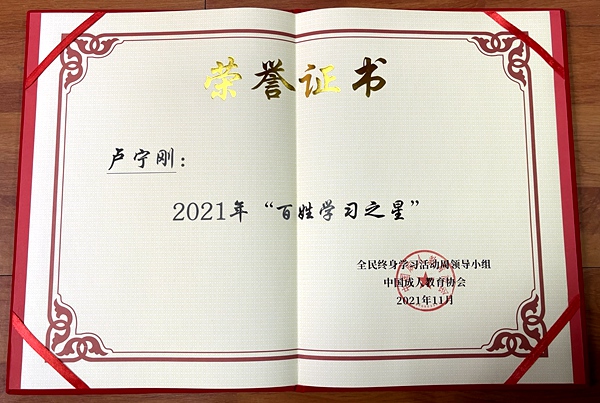 荣誉证书
卢宁刚：
2021年“百姓学习之星”
全民终身学习活动周领导小组
中国成人教育协会
2021年11月